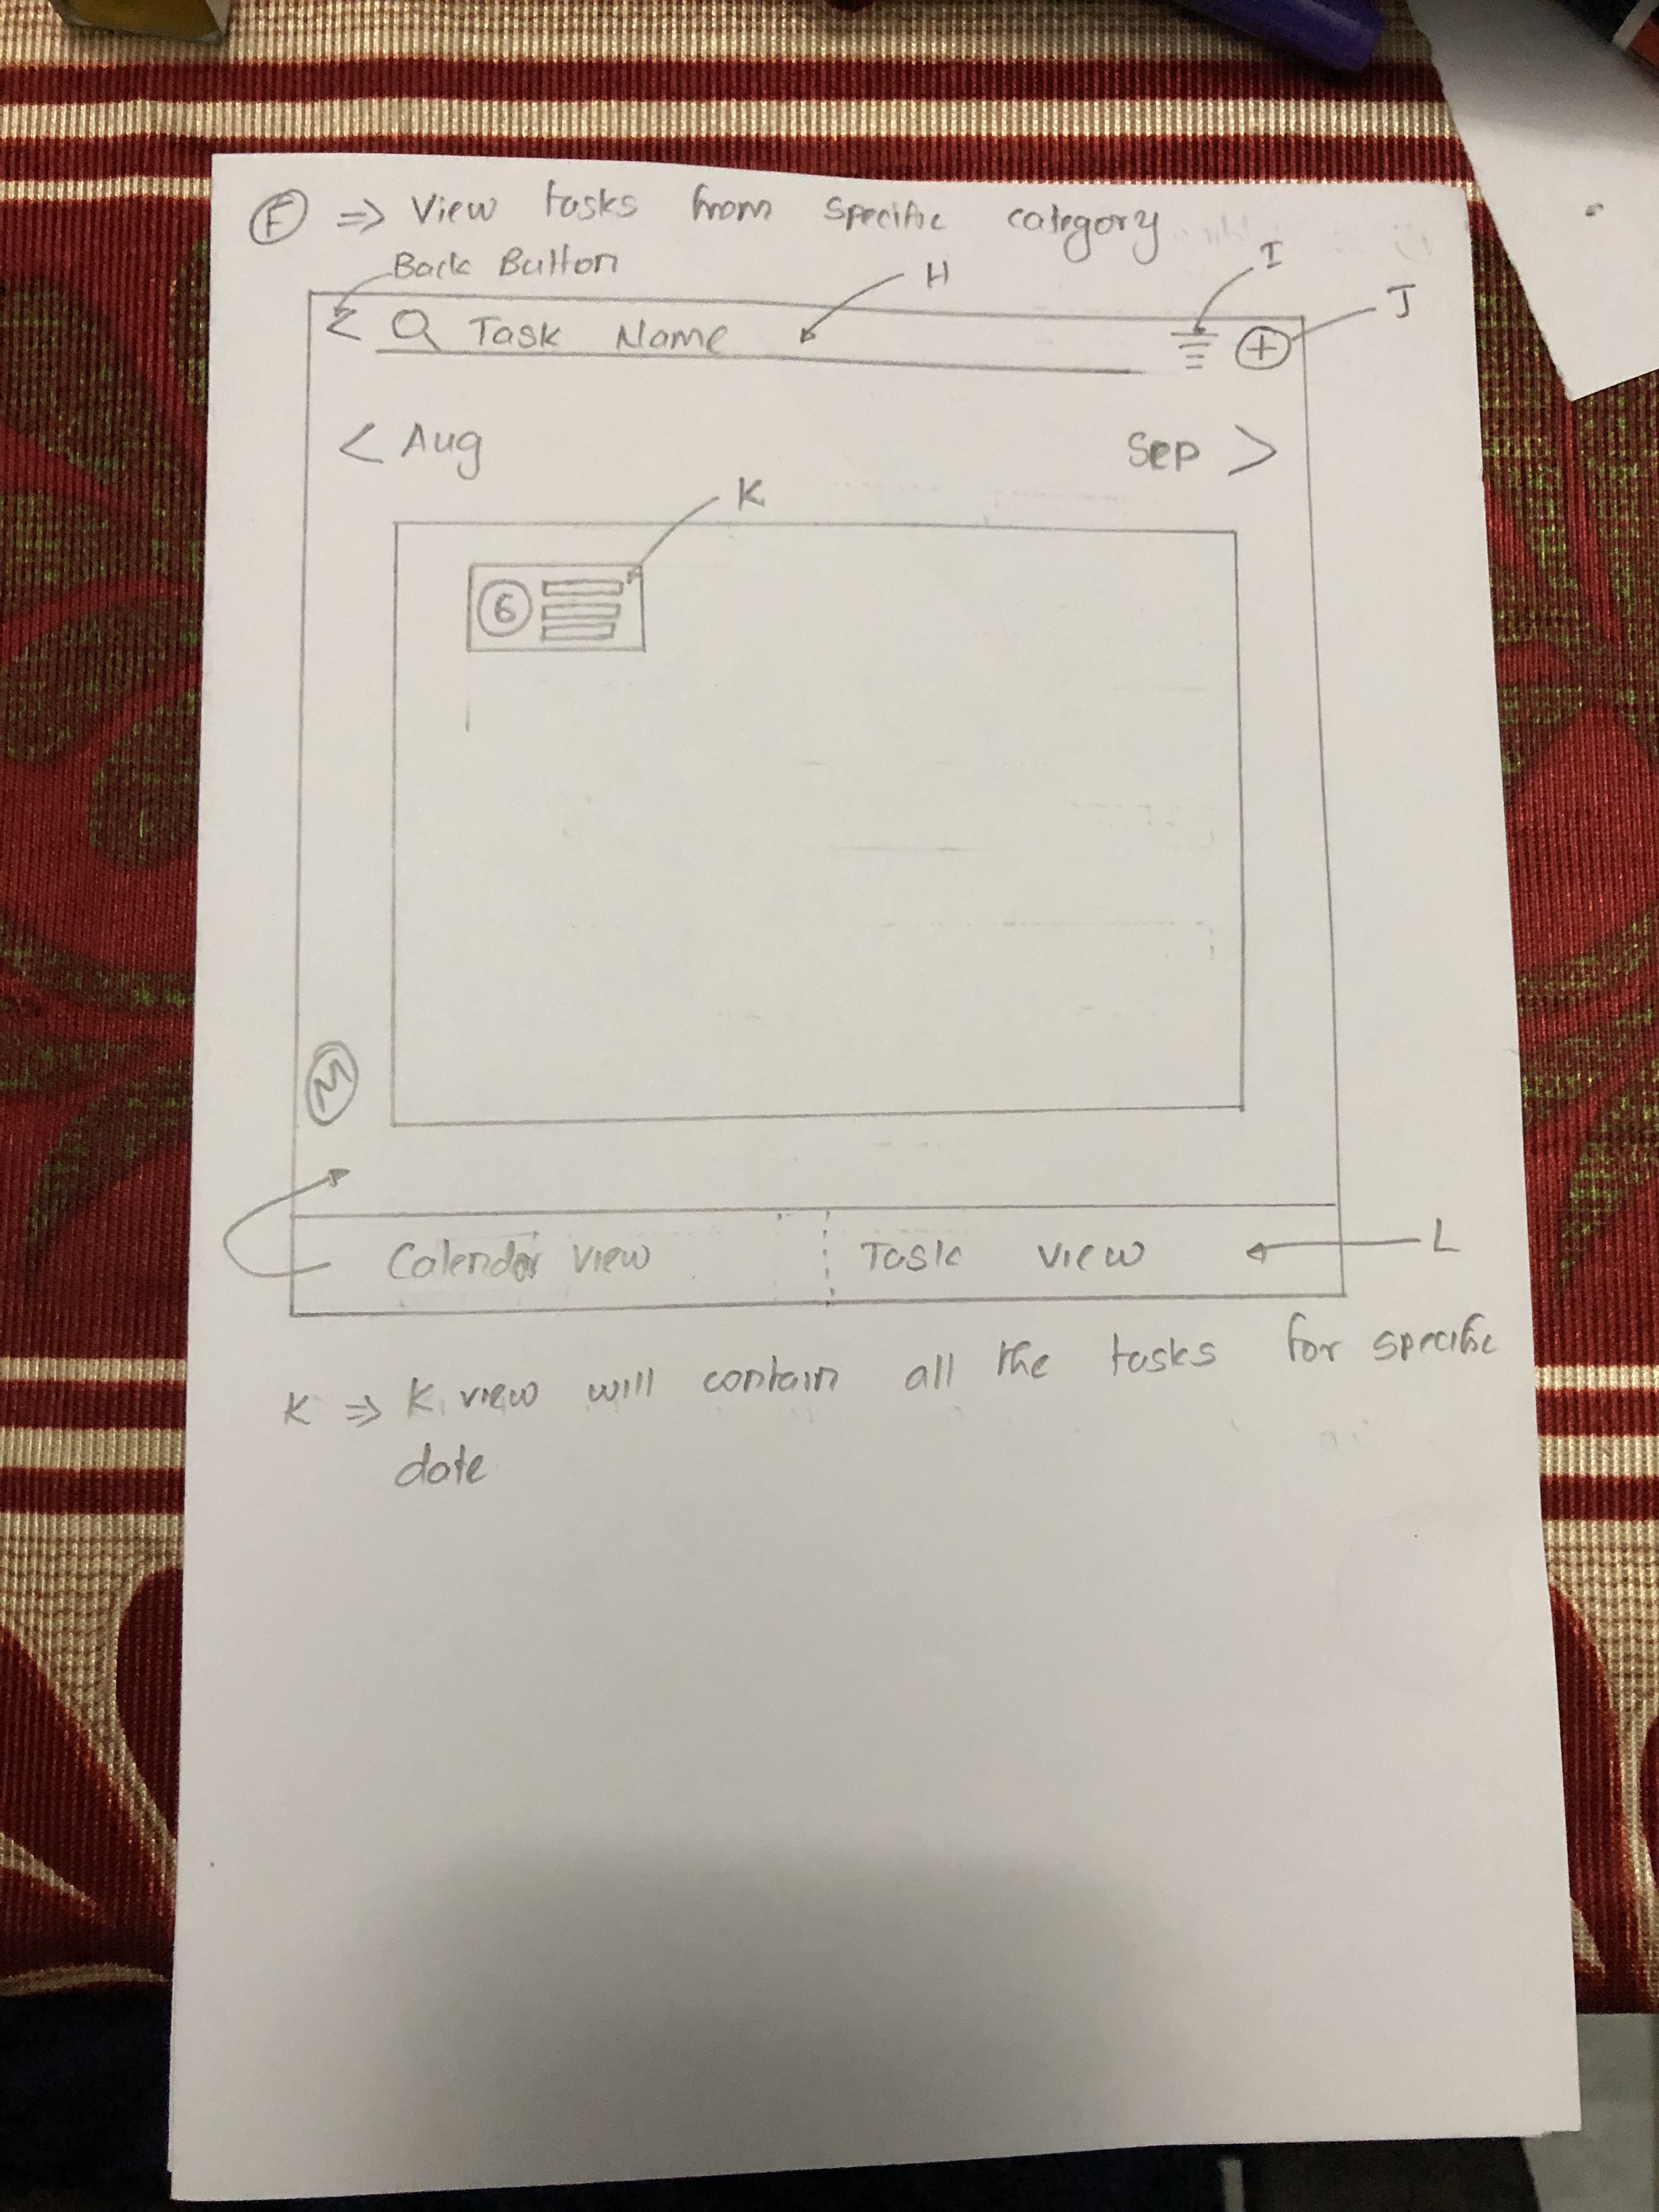 F ⇒ View tasks from specific category
Back Button
H
I
J
< Task Name +
< Aug Sep >
K
6
M
Calendar view Task view L
K ⇒ K view will contain all the tasks for specific
date